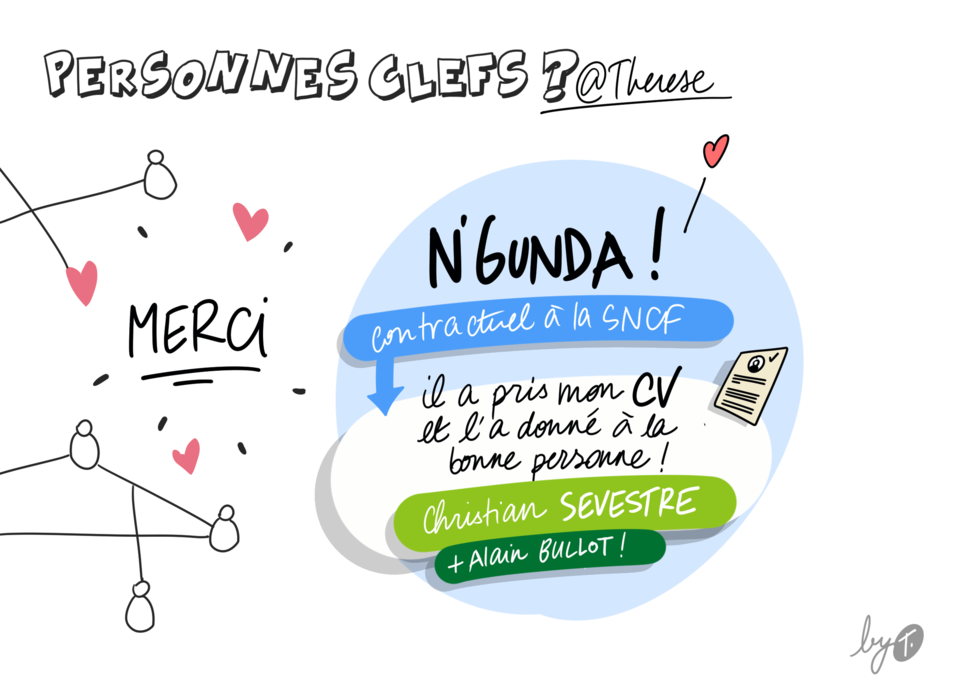 PERSONNES CLEFS ? @Therese
MERCi
N'GUNDA !
contractuel à la SNCF
il a pris mon CV
et l'a donné à la
bonne personne !
Christian SEVESTRE
+ Alain BULLOT !
by T.